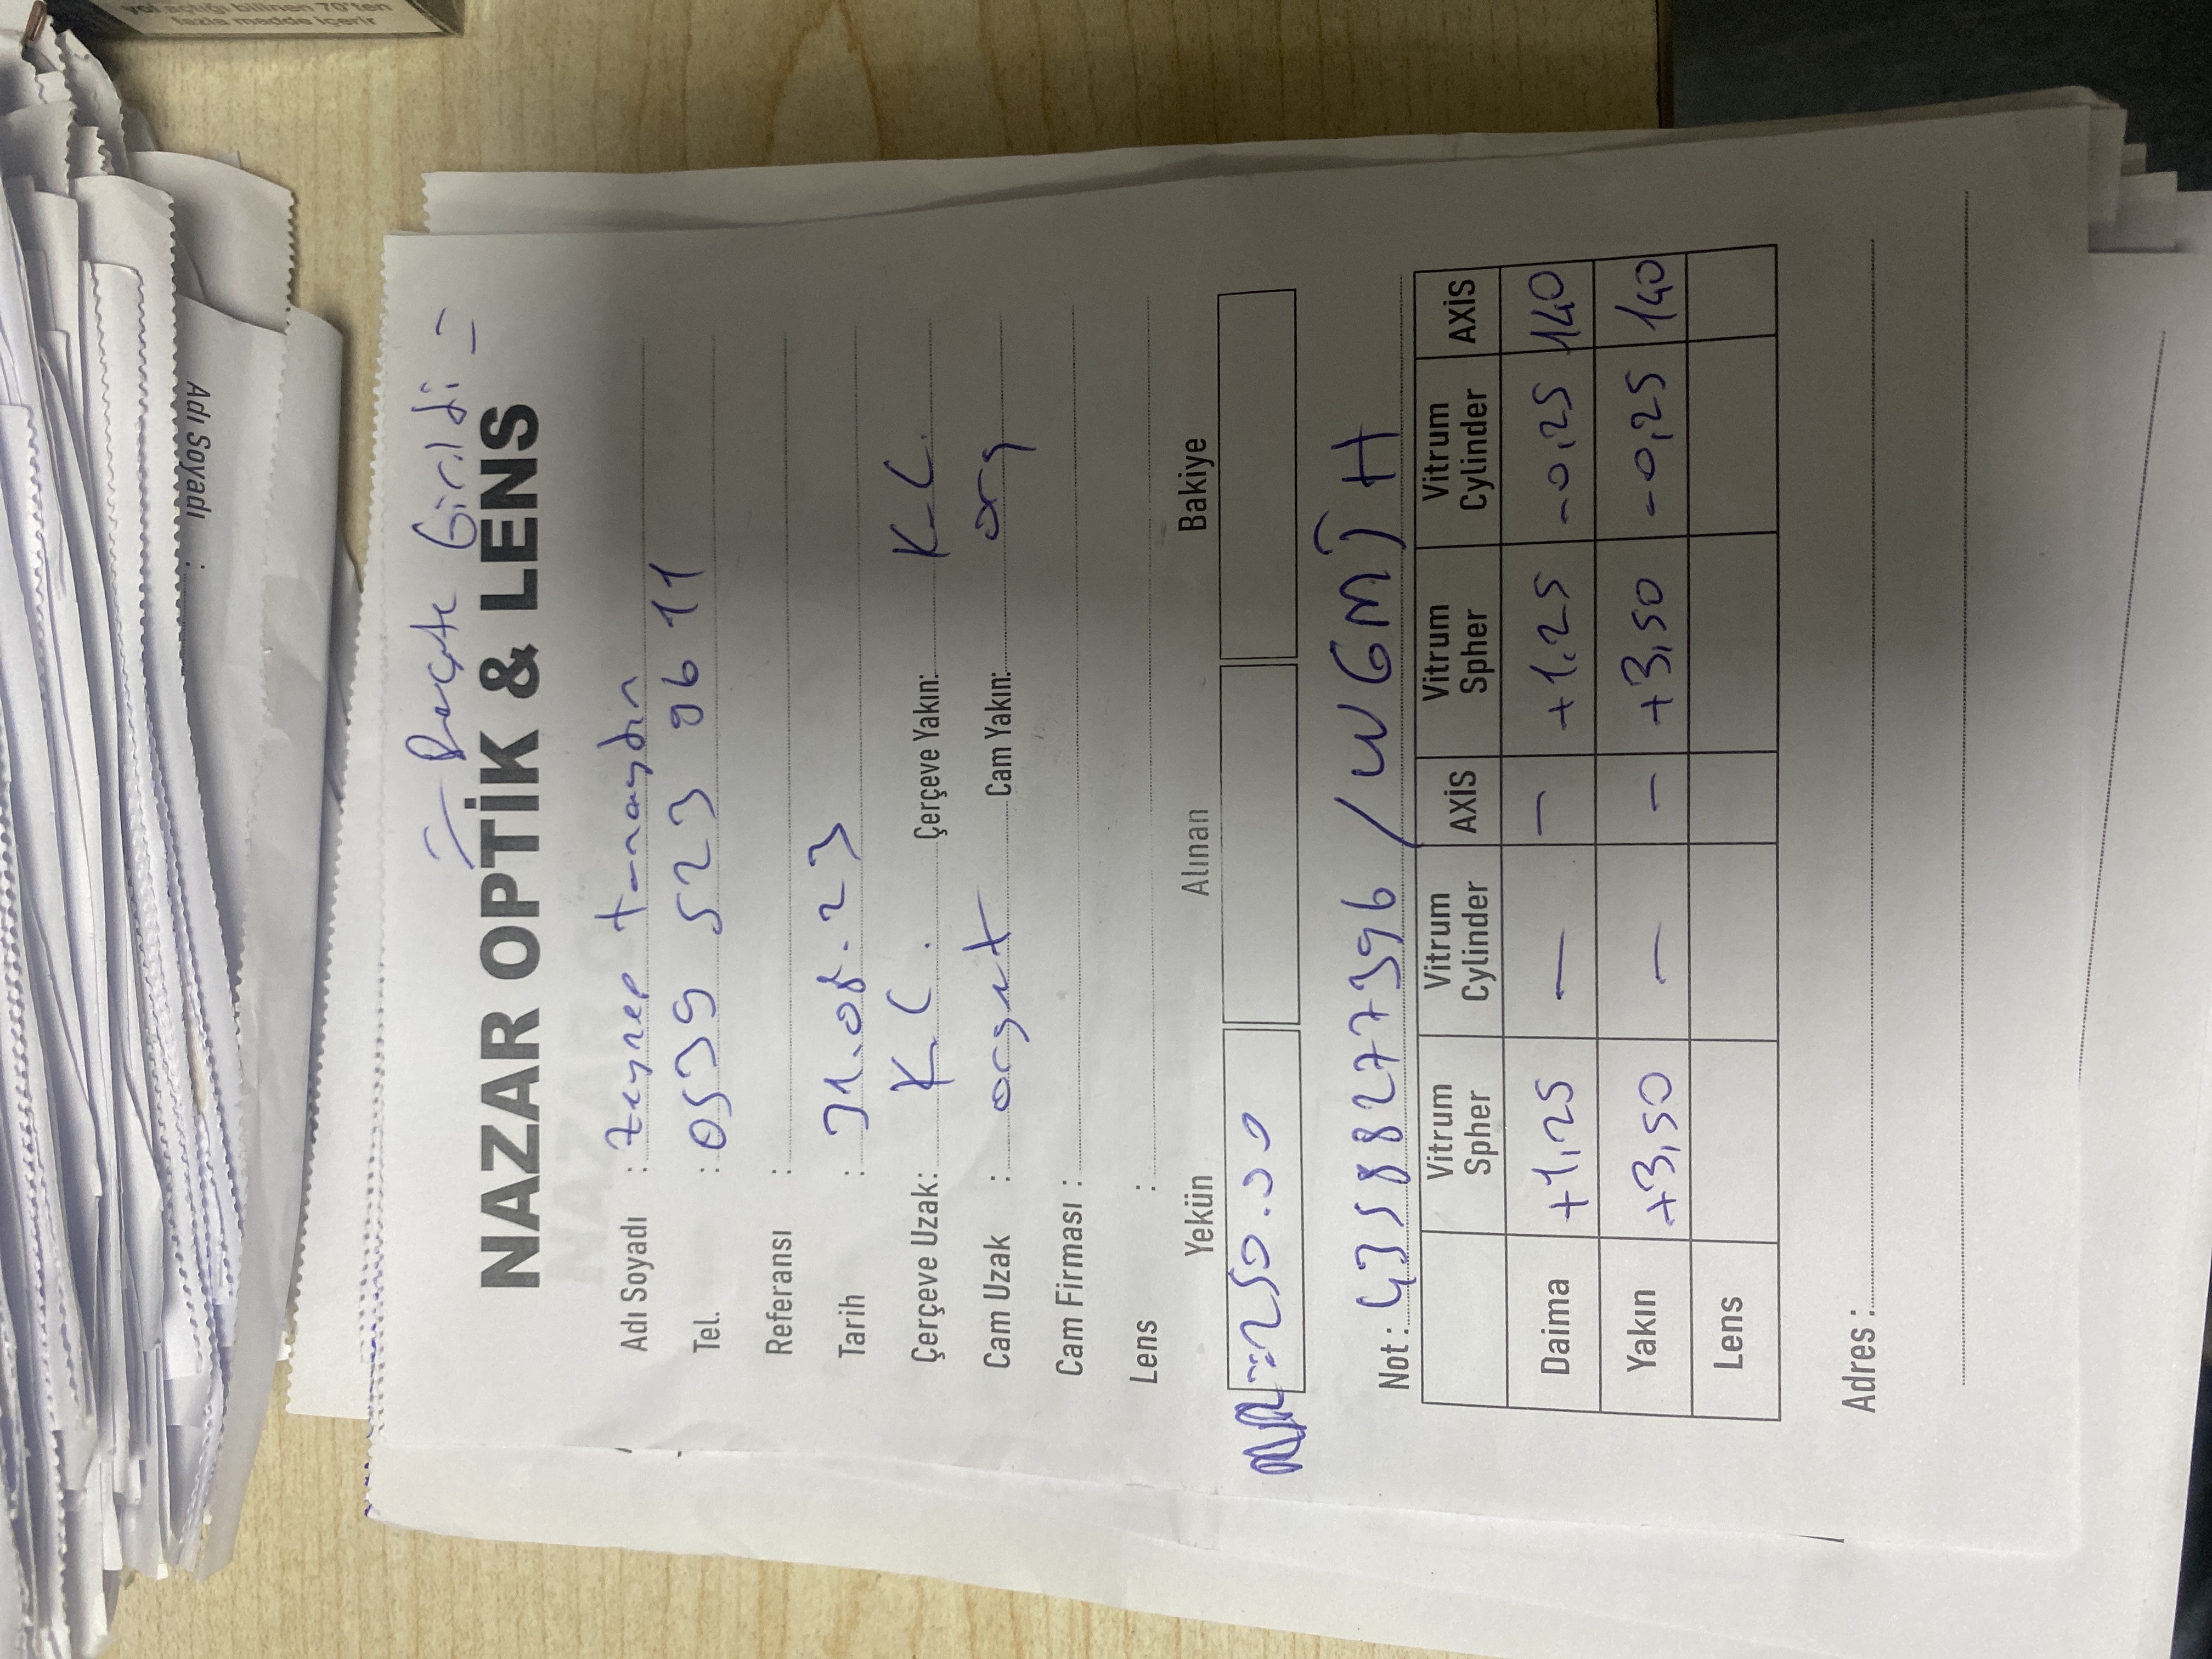 Adı Soyadı :
= Reçete Girildi =
NAZAR OPTİK & LENS
Adı Soyadı : Zeynep tanaydın
Tel. : 0539 523 96 11
Referansı :
Tarih : 31.08.23
Çerçeve Uzak: K C. Çerçeve Yakın: K C.
Cam Uzak : orgnt Cam Yakın: org
Cam Firması :
Lens :
Yekün Alınan Bakiye
=250.00
Not : 43588277396 / WGMJH
Vitrum Spher Vitrum Cylinder AXİS Vitrum Spher Vitrum Cylinder AXİS
Daima +1,25 — — +1.25 -0,25 140
Yakın +3,50 — — +3,50 -0,25 140
Lens
Adres :